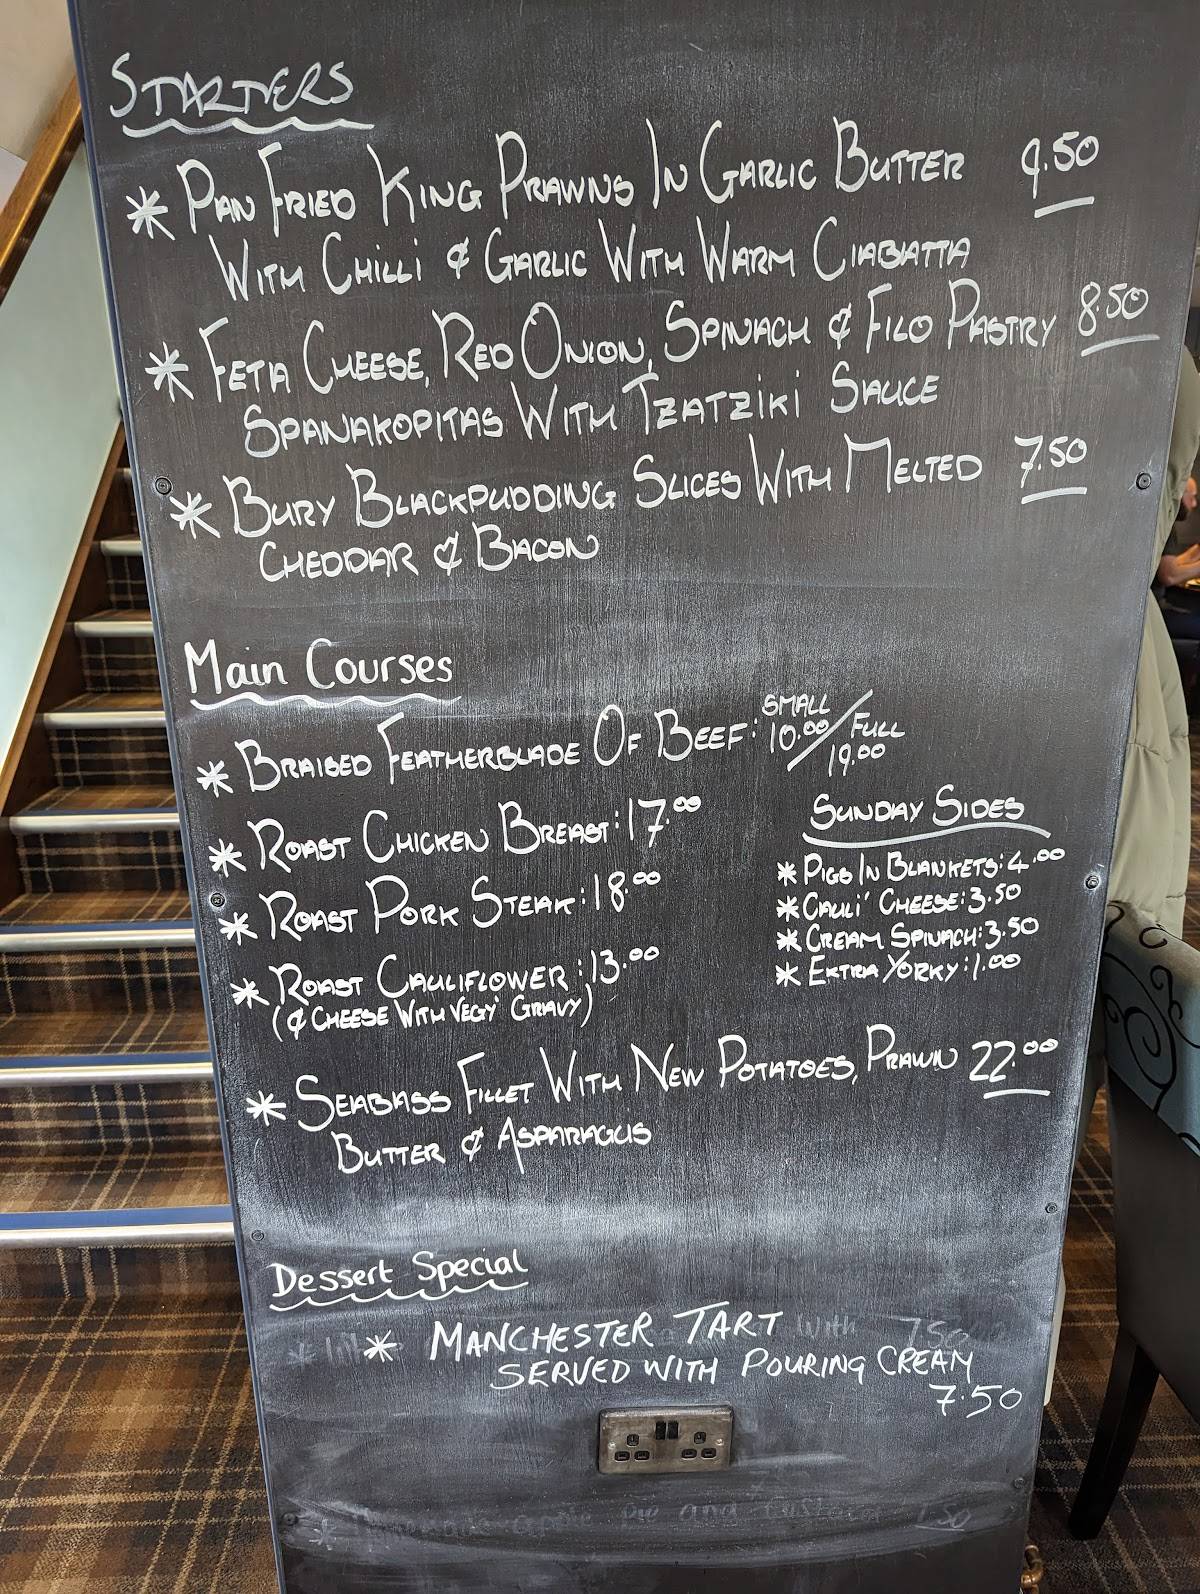 STARTERS
* PAN FRIED KING PRAWNS IN GARLIC BUTTER 9.50
WITH CHILLI & GARLIC WITH WARM CIABATTA
* FETA CHEESE, RED ONION, SPINACH & FILO PASTRY 8.50
SPANAKOPITAS WITH TZATZIKI SAUCE
* BURY BLACKPUDDING SLICES WITH MELTED 7.50
CHEDDAR & BACON
Main Courses
* BRAISED FEATHERBLADE OF BEEF: SMALL 10.00 / FULL 19.00
* ROAST CHICKEN BREAST: 17.00
* ROAST PORK STEAK: 18.00
* ROAST CAULIFLOWER: 13.00
(& CHEESE WITH VEGY' GRAVY)
SUNDAY SIDES
* PIGS IN BLANKETS: 4.00
* CAULI' CHEESE: 3.50
* CREAM SPINACH: 3.50
* EXTRA YORKY: 1.00
* SEABASS FILLET WITH NEW POTATOES, PRAWN 22.00
BUTTER & ASPARAGUS
Dessert Special
* MANCHESTER TART with 7.50
SERVED WITH POURING CREAM
7.50
apple pie and custard 7.50